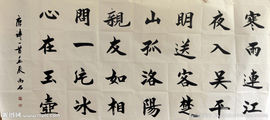 寒雨連江
夜入吳平
明送客楚
山孤洛陽
親友如相
問一片冰
心在玉壺
唐詩一首